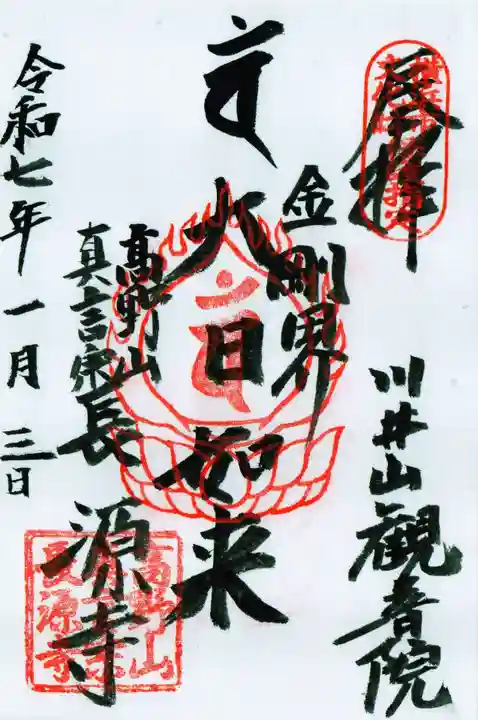 展拝
川井山観音院
金剛界
𑖪𑖽
大日如来
高野山
真言宗長源寺
令和七年一月三日
高野山
真言宗
長源寺